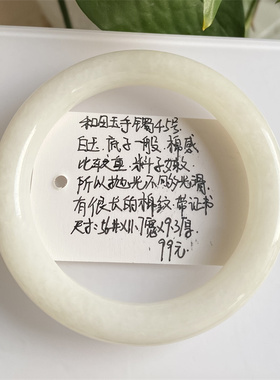 和田玉手镯45号
白玉.底子一般.棉感
比较重.料子嫩
所以抛光不同的光滑
有很长的棉纹.带证书
尺寸:54.4x11.7宽x9.3厚
99元.